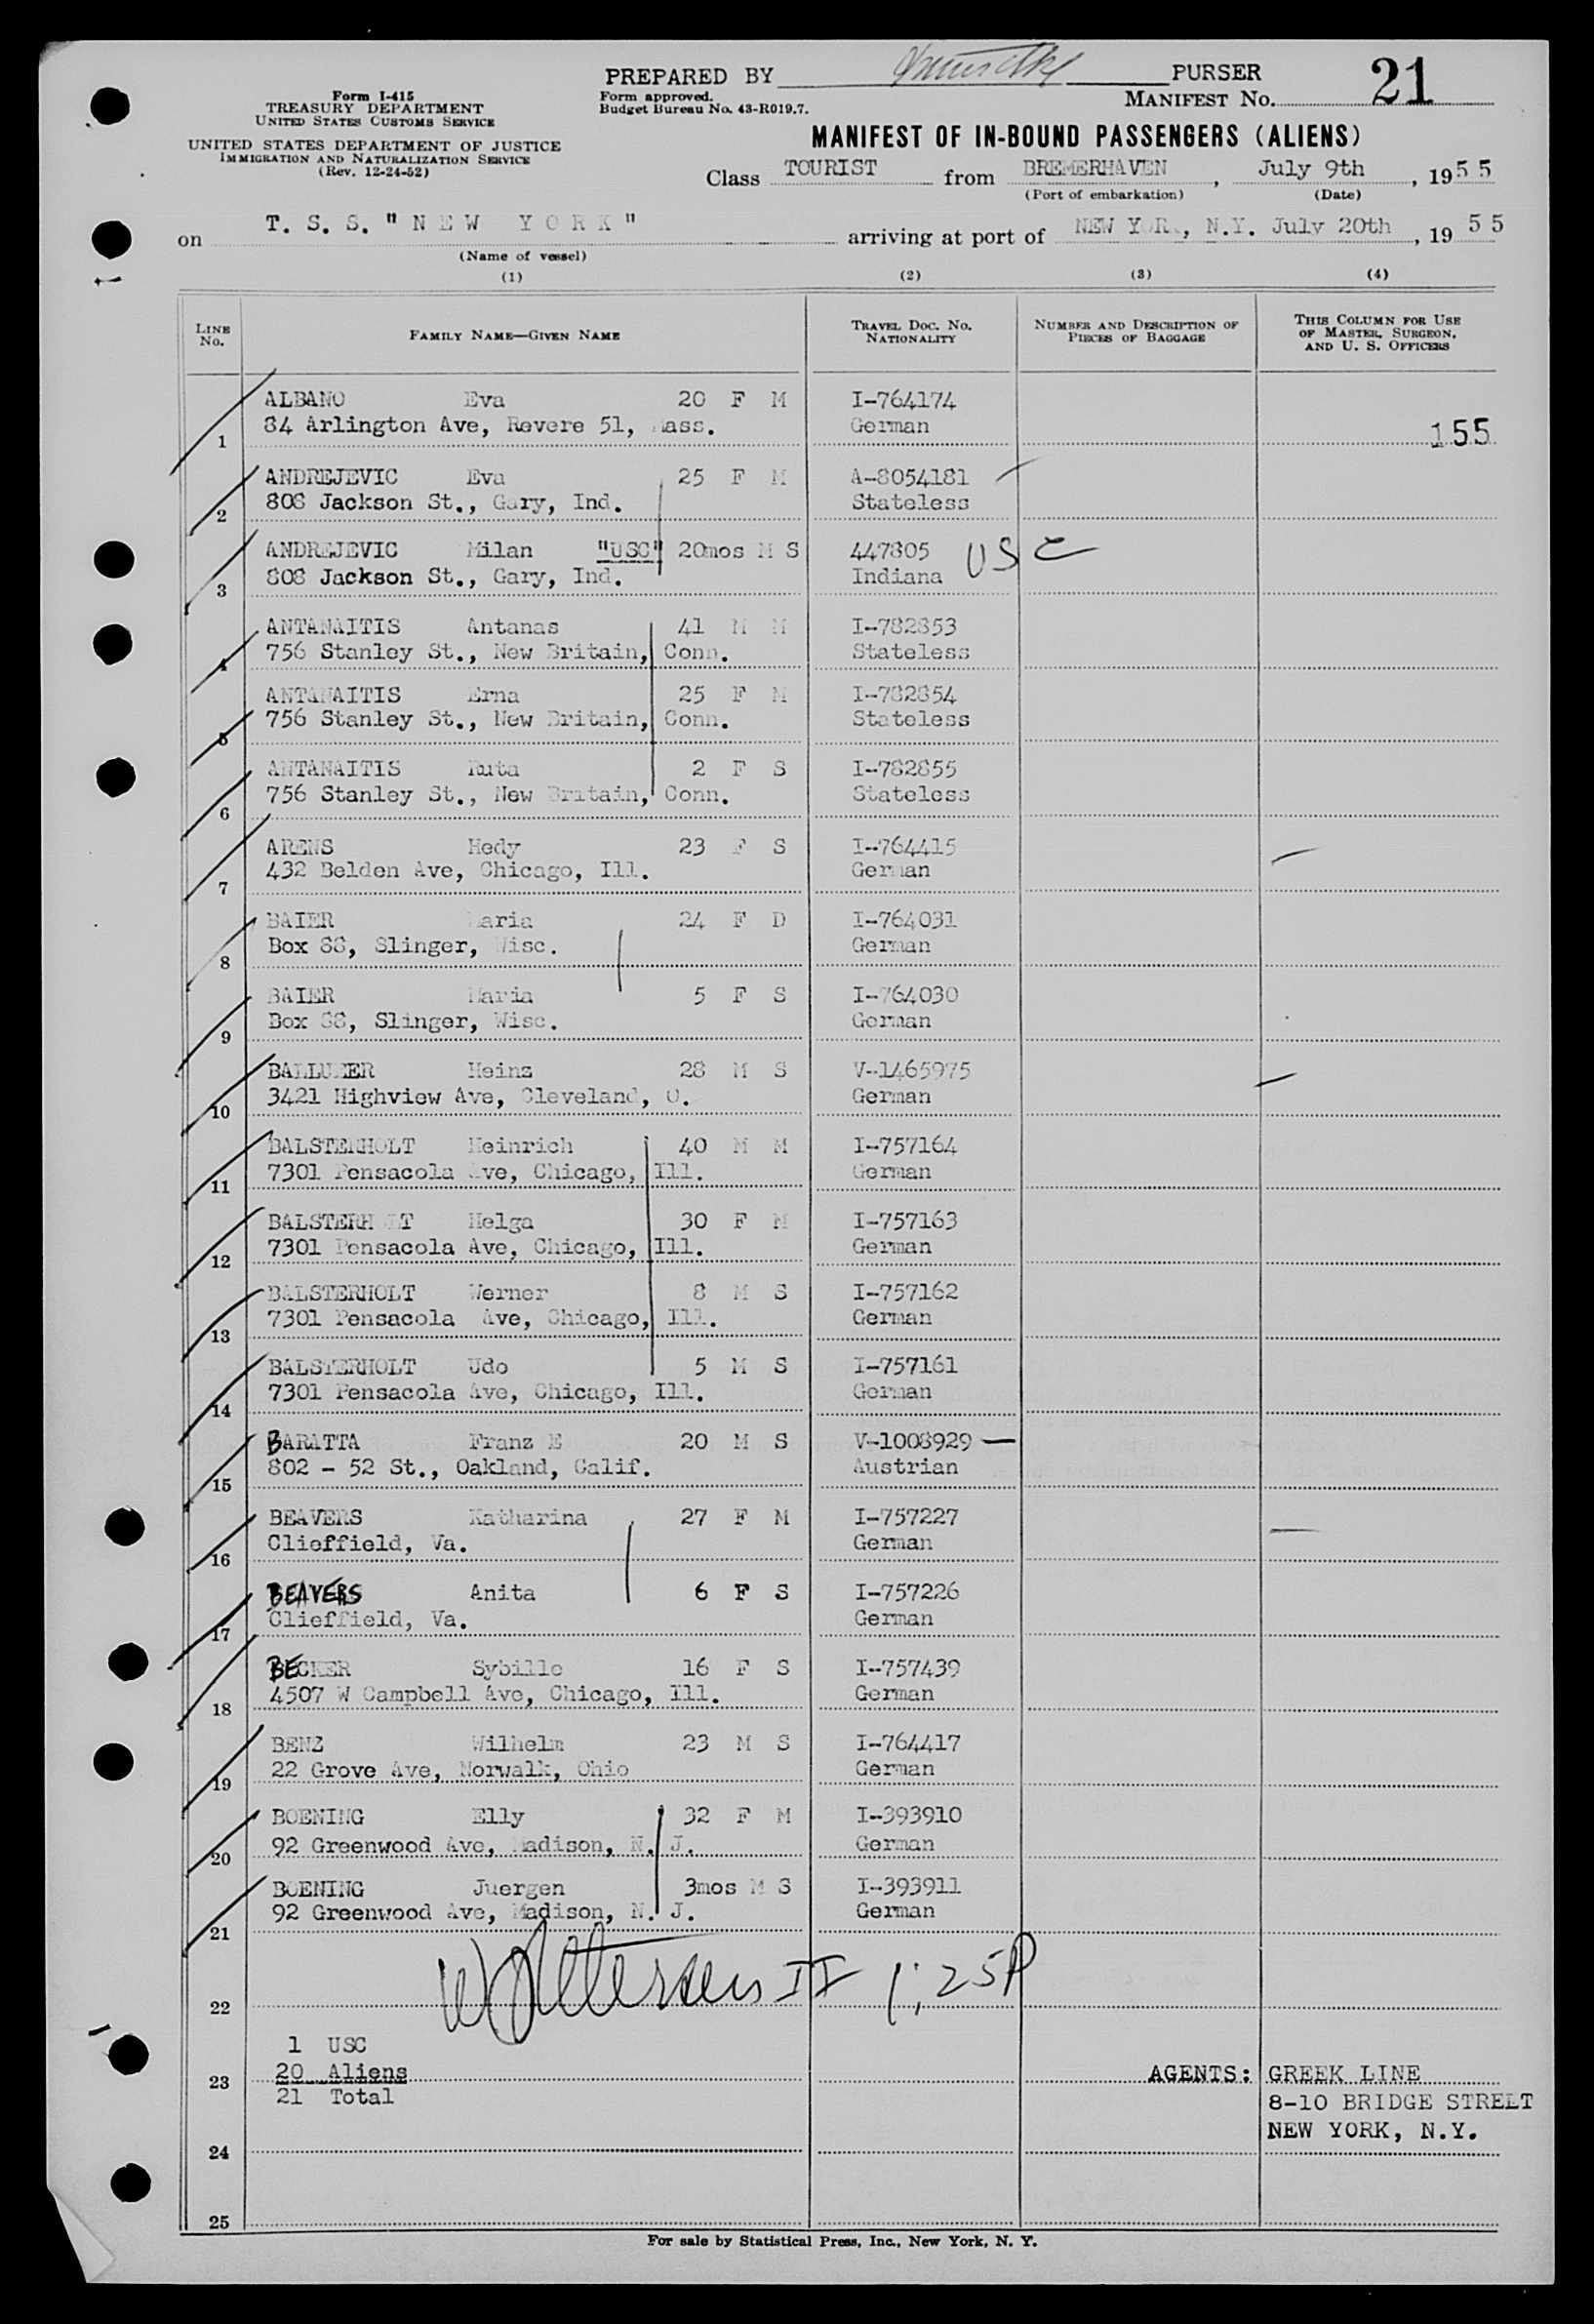 PREPARED BY PURSER
Form I-415
TREASURY DEPARTMENT
UNITED STATES CUSTOMS SERVICE
UNITED STATES DEPARTMENT OF JUSTICE
IMMIGRATION AND NATURALIZATION SERVICE
(Rev. 12-24-52)
Form approved.
Budget Bureau No. 43-R019.7.
MANIFEST No. 21
MANIFEST OF IN-BOUND PASSENGERS (ALIENS)
Class TOURIST from BREMERHAVEN, July 9th, 1955
(Port of embarkation) (Date)
on T. S. S. "NEW YORK" arriving at port of NEW YORK, N.Y. July 20th, 1955
(Name of vessel)
(1) (2) (3) (4)
LINE No. FAMILY NAME—GIVEN NAME TRAVEL DOC. NO. NATIONALITY NUMBER AND DESCRIPTION OF PIECES OF BAGGAGE THIS COLUMN FOR USE OF MASTER, SURGEON, AND U. S. OFFICERS
ALBANO Eva 20 F M I-764174
1 84 Arlington Ave, Revere 51, Mass. German 155
ANDREJEVIC Eva 25 F M A-8054181
2 808 Jackson St., Gary, Ind. Stateless
ANDREJEVIC Milan "USC" 20mos M S 447805 USC
3 808 Jackson St., Gary, Ind. Indiana
ANTANAITIS Antanas 41 M M I-782853
4 756 Stanley St., New Britain, Conn. Stateless
ANTANAITIS Erna 25 F M I-782854
5 756 Stanley St., New Britain, Conn. Stateless
ANTANAITIS Ruta 2 F S I-782855
6 756 Stanley St., New Britain, Conn. Stateless
ARENS Hedy 23 F S I-764415
7 432 Belden Ave, Chicago, Ill. German
BAIER Maria 24 F D I-764031
8 Box 88, Slinger, Wisc. German
BAIER Maria 5 F S I-764030
9 Box 88, Slinger, Wisc. German
Heinz 28 M S V-1465975
10 3421 Highview Ave, Cleveland, O. German
BALSTERHOLT Heinrich 40 M M I-757164
11 7301 Pensacola Ave, Chicago, Ill. German
BALSTERHOLT Helga 30 F M I-757163
12 7301 Pensacola Ave, Chicago, Ill. German
BALSTERHOLT Werner 8 M S I-757162
13 7301 Pensacola Ave, Chicago, Ill. German
BALSTERHOLT Udo 5 M S I-757161
14 7301 Pensacola Ave, Chicago, Ill. German
BARATTA Franz E 20 M S V-1008929
15 802 - 52 St., Oakland, Calif. Austrian
BEAVERS Katharina 27 F M I-757227
16 Clieffield, Va. German
BEAVERS Anita 6 F S I-757226
17 Clieffield, Va. German
BECKER Sybille 16 F S I-757439
18 4507 W Campbell Ave, Chicago, Ill. German
BENZ Wilhelm 23 M S I-764417
19 22 Grove Ave, Norwalk, Ohio German
BOENING Elly 32 F M I-393910
20 92 Greenwood Ave, Madison, N. J. German
BOENING Juergen 3mos M S I-393911
21 92 Greenwood Ave, Madison, N. J. German
22 II 1:25P
1 USC
23 20 Aliens AGENTS: GREEK LINE
21 Total 8-10 BRIDGE STREET
NEW YORK, N.Y.
24
25
For sale by Statistical Press, Inc., New York, N. Y.